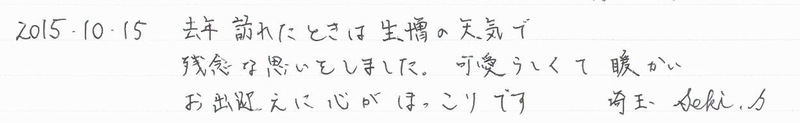 2015.10.15 去年訪れたときは生憎の天気で
残念な思いをしました。可愛らしくて暖かい
お出迎えに心がほっこりです 埼玉 Seki.S